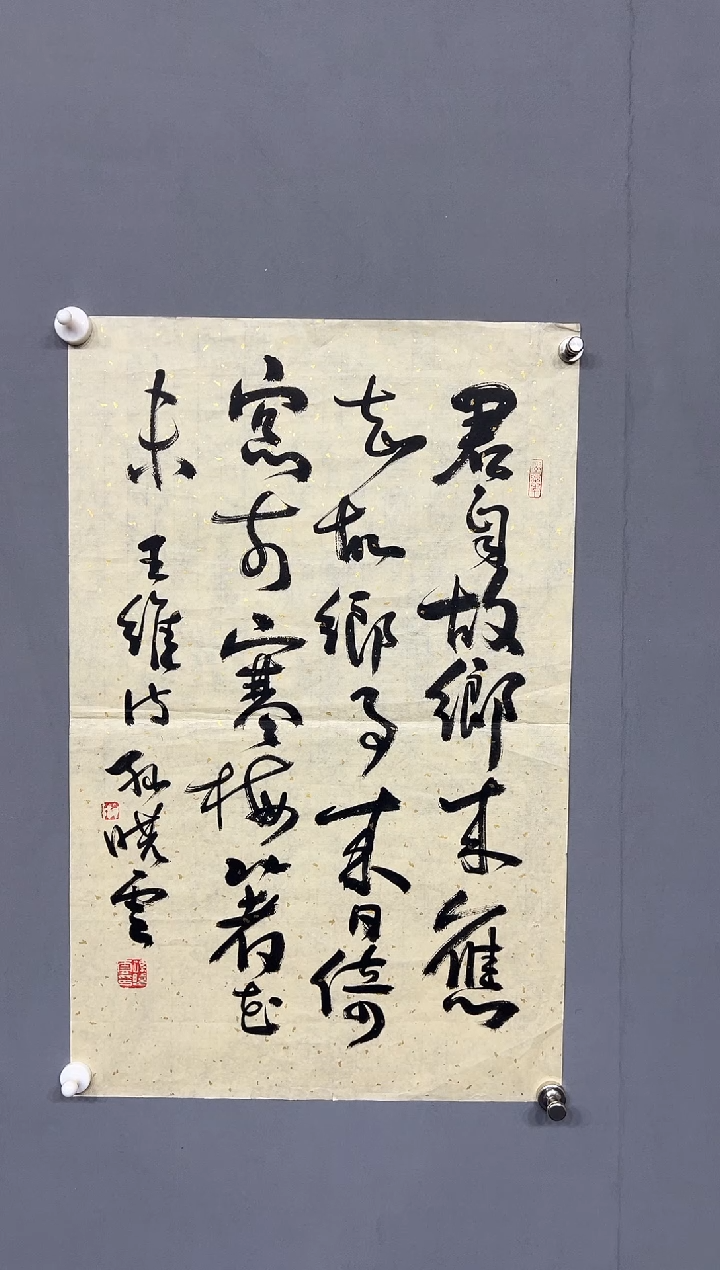 君自故鄉来應
知故鄉事来日綺
窻前寒梅著花
未 王維诗 孙晓雲